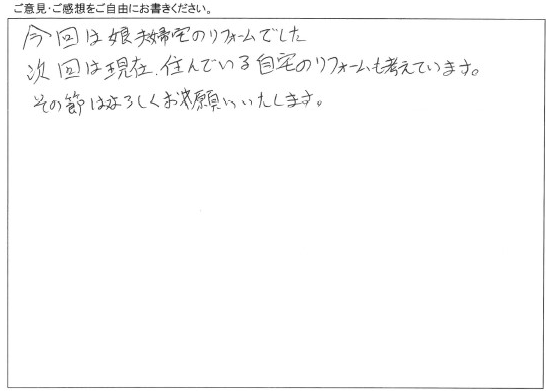 ご意見・ご感想をご自由にお書きください。
今回は娘夫婦宅のリフォームでした
次回は現在、住んでいる自宅のリフォームも考えています。
その節はよろしくお願いいたします。